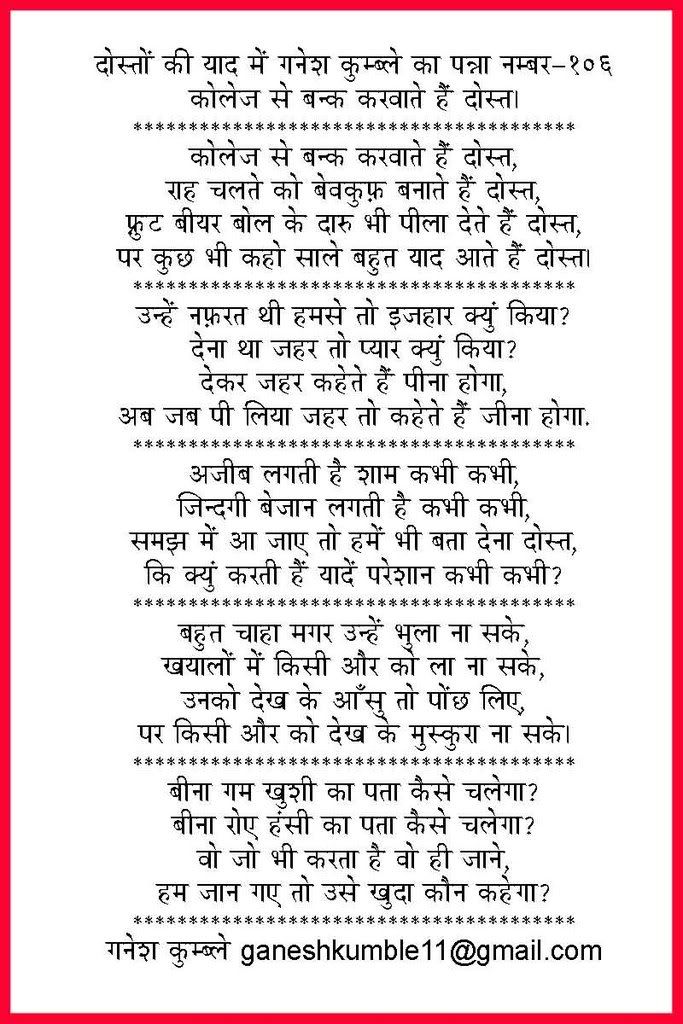 दोस्तों की याद में गनेश कुम्ब्ले का पन्ना नम्बर-१०६
कोलेज से बन्क करवाते हैं दोस्त।
****************************************
कोलेज से बन्क करवाते हैं दोस्त,
राह चलते को बेवकुफ़ बनाते हैं दोस्त,
फ़्रुट बीयर बोल के दारु भी पीला देते हैं दोस्त,
पर कुछ भी कहो साले बहुत याद आते हैं दोस्त।
****************************************
उन्हें नफ़रत थी हमसे तो इजहार क्युं किया?
देना था जहर तो प्यार क्युं किया?
देकर जहर कहेते हैं पीना होगा,
अब जब पी लिया जहर तो कहेते हैं जीना होगा.
****************************************
अजीब लगती है शाम कभी कभी,
जिन्दगी बेजान लगती है कभी कभी,
समझ में आ जाए तो हमें भी बता देना दोस्त,
कि क्युं करती हैं यादें परेशान कभी कभी?
****************************************
बहुत चाहा मगर उन्हें भुला ना सके,
खयालों में किसी और को ला ना सके,
उनको देख के आँसु तो पोंछ लिए,
पर किसी और को देख के मुस्कुरा ना सके।
****************************************
बीना गम खुशी का पता कैसे चलेगा?
बीना रोए हंसी का पता कैसे चलेगा?
वो जो भी करता है वो ही जाने,
हम जान गए तो उसे खुदा कौन कहेगा?
****************************************
गनेश कुम्ब्ले ganeshkumble11@gmail.com